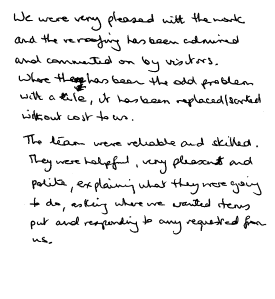 We were very pleased with the work
and the reroofing has been admired
and commented on by visitors.
Where there has been the odd problem
with a tile, it has been replaced/sorted
without cost to us.
The team were reliable and skilled.
They were helpful, very pleasant and
polite, explaining what they were going
to do, asking where we wanted items
put and responding to any requested from
us.